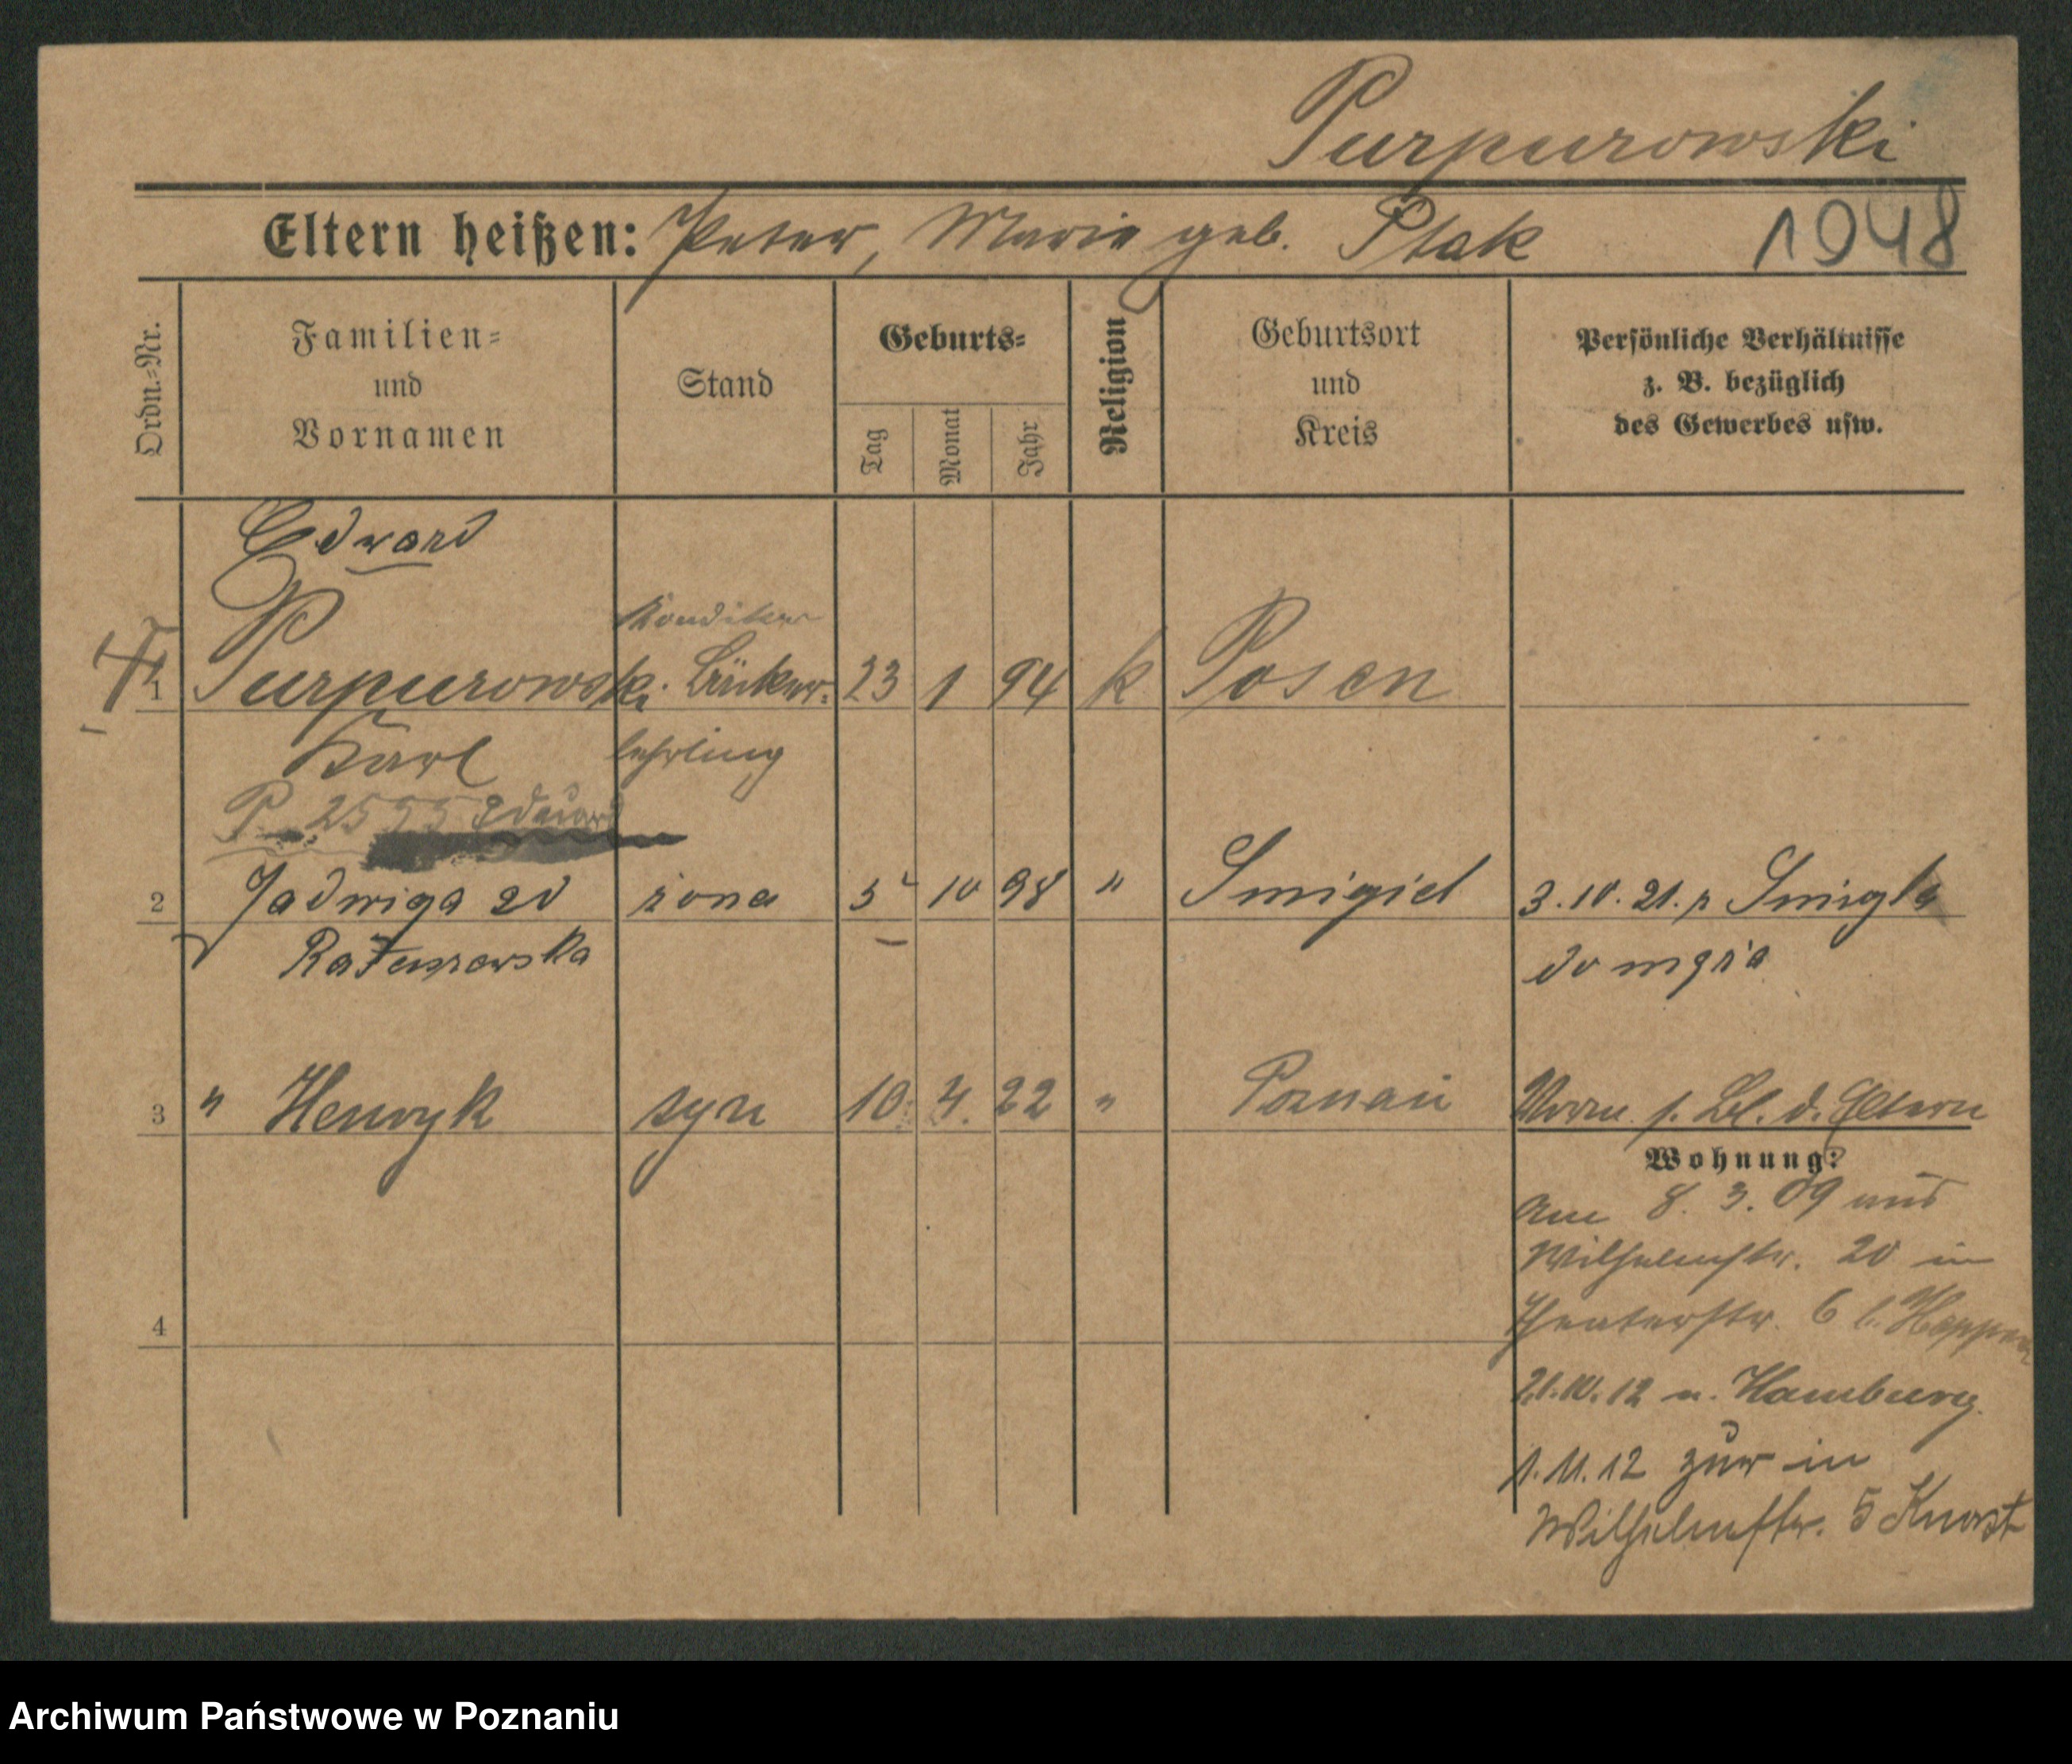 Purpurowski
Eltern heißen: Peter, Marie geb. Ptak 1948
Ordn.-Nr.
Familien-
und
Vornamen
Stand
Geburts-
Tag
Monat
Jahr
Religion
Geburtsort
und
Kreis
Persönliche Verhältnisse
z. B. bezüglich
des Gewerbes usw.
Edward
Konditor
1 Purpurowski Bäcker- 23 1 94 k Posen
Karl lehrling
P 2555 Eduard
2 Jadwiga zd żona 5 10 98 " Smigiel 3.10.21. z Smigla
do męża
3 " Henryk syn 10. 4. 22 " Poznań Vorm. s. Bl. d. Eltern
Wohnung:
Am 8. 3. 09 aus
Wilhelmstr. 20 in
Theaterstr. 6 b. Hoppe
21.10.12 n. Hamburg.
1.11.12 zur in
Wilhelmstr. 5 Knorst
4
Archiwum Państwowe w Poznaniu